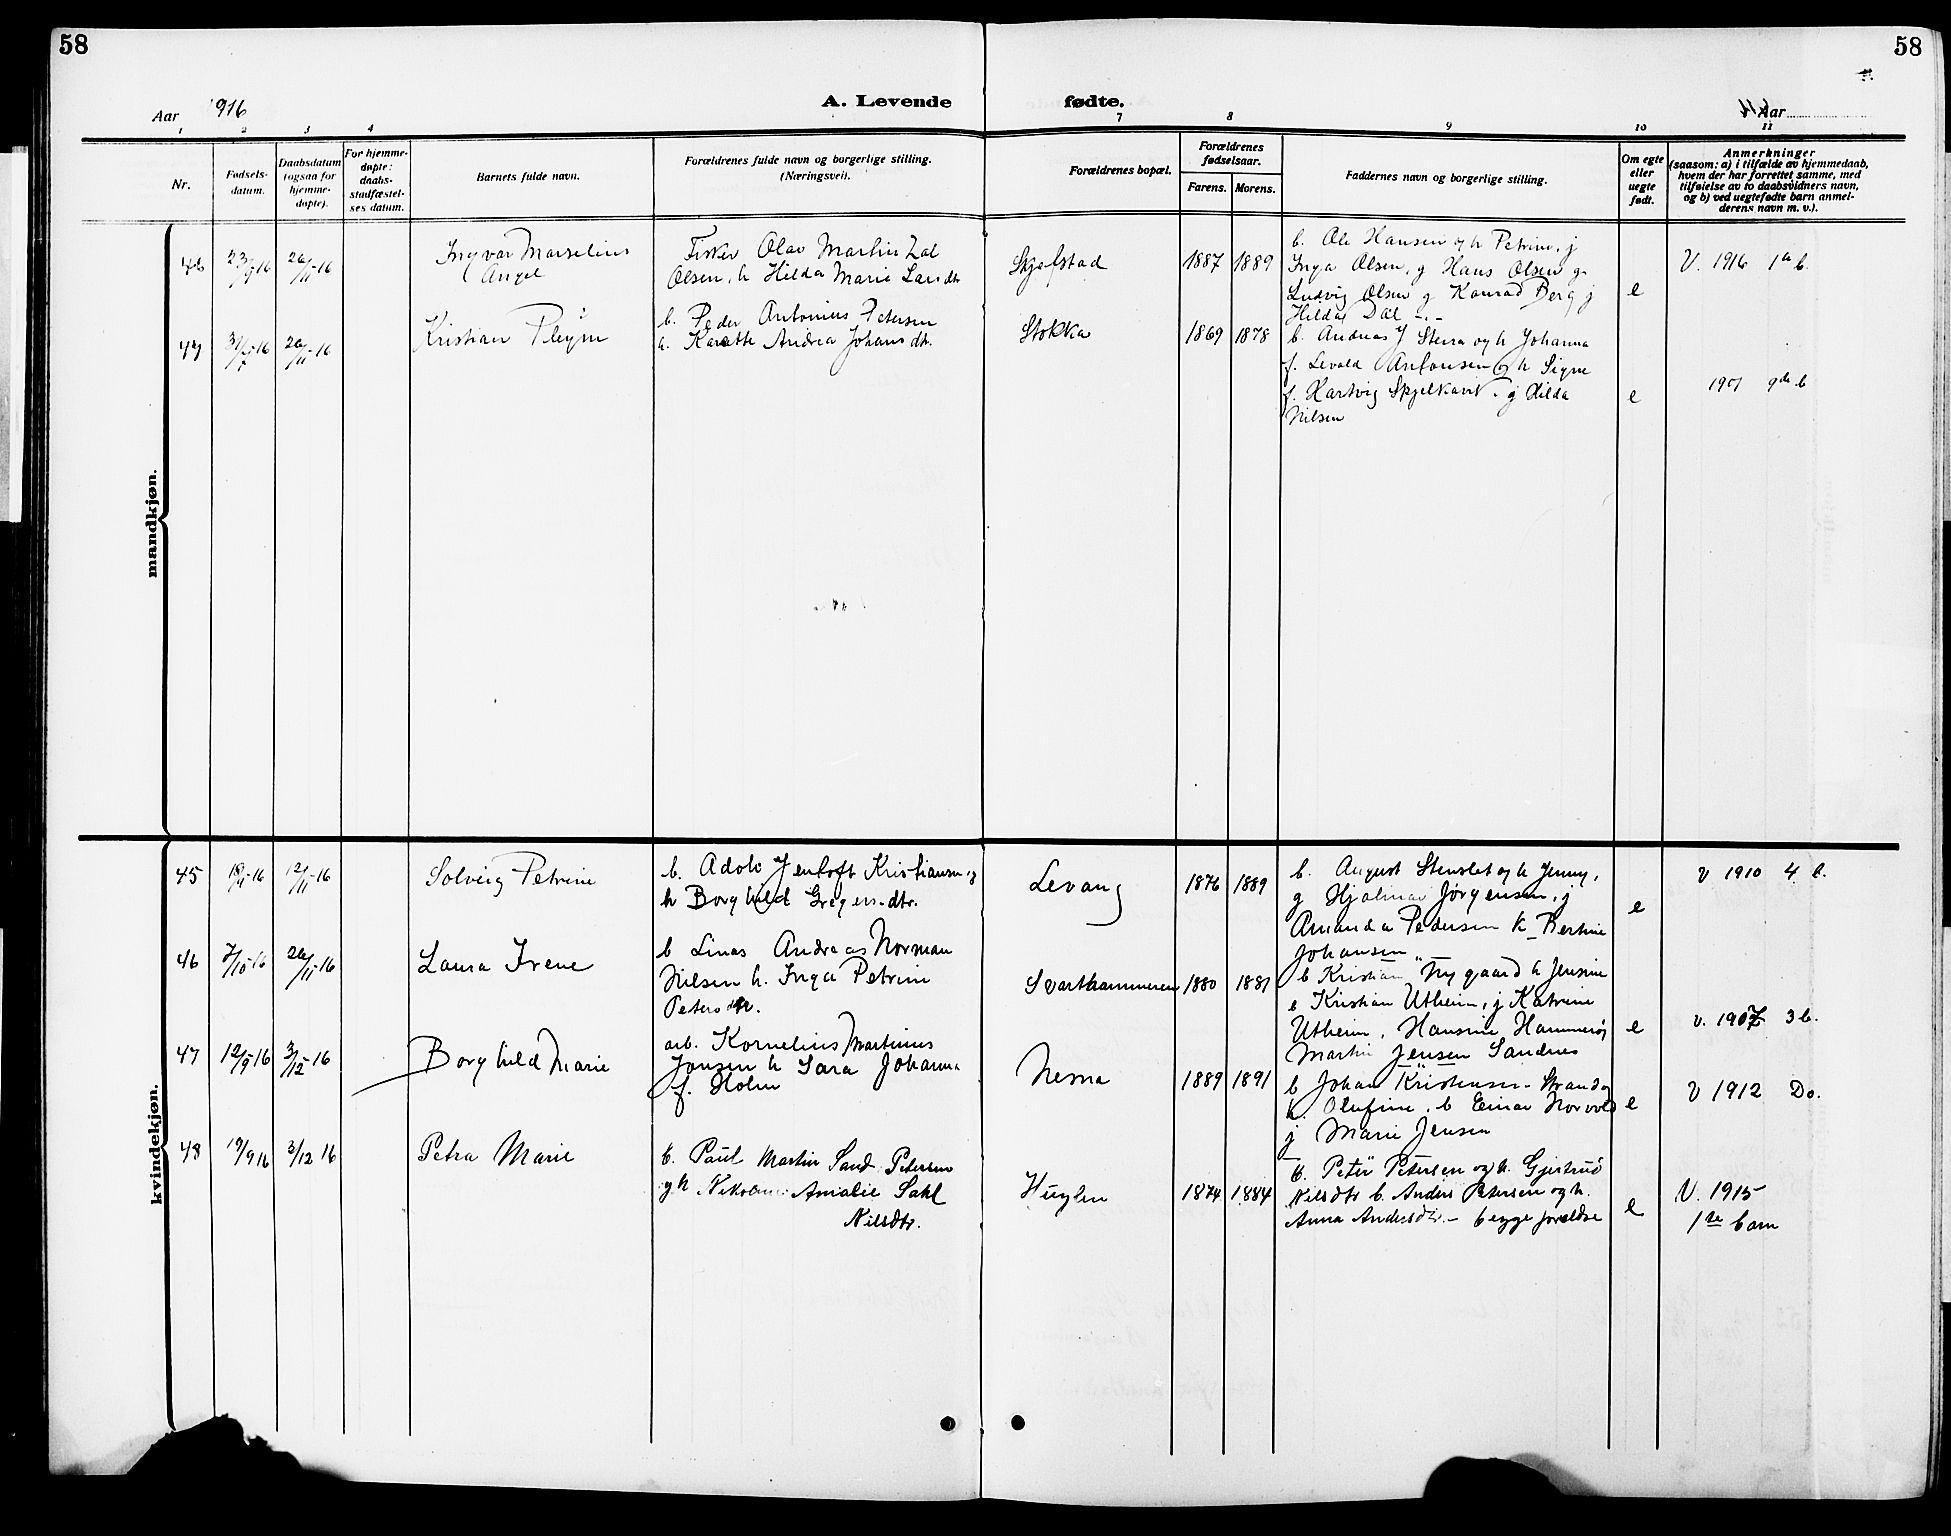 58
58
Aar 1916
A. Levende fødte.
Aar
1 2 3 4 7 8 9 10 11
Nr.
Fødsels-
datum.
Daabsdatum
(ogsaa for
hjemme-
døpte).
For hjemme-
døpte:
daabs-
stadfæstel-
ses datum.
Barnets fulde navn.
Forældrenes fulde navn og borgerlige stilling.
(Næringsvei).
Forældrenes bopæl.
Forældrenes
fødselsaar.
Farens. Morens.
Faddernes navn og borgerlige stilling.
Om egte
eller
uegte
født.
Anmerkninger
(saasom: a) i tilfælde av hjemmedaab,
hvem der har forrettet samme, med
tilføielse av to daabsvidners navn,
og b) ved uegtefødte barn anmel-
derens navn m. v.).
mandkjøn.
46
23/9-16
26/11-16
Ingvar Marselius
Angel
Fisker Olav Martin
Olsen, h Hilda Marie Larsdtr
Skjelstad
1887 1889
b. Ole Hansen og h Petrine, j
Inga Olsen, g Hans Olsen g
Ludvig Olsen g Konrad Berg j
Hilda Dal -"-
e
V. 1916 1ste b.
47
26/11-16
Kristian Pleym
b. Peder Antonius Petersen
h. Karette Andrea Johansdtr.
Stokka
1869 1878
b. Andreas J Stenra og h Johanna
f. Levald Antonsen og h Signe
f. Hartvig Skjelkavik. g Hilda
Nilsen
e
1901 9de b
kvindekjøn.
45
12/11-16
Solveig Petrine
b. Adolv Jentoft Kristiansen og
h Borghild Gregers.dtr.
Levang
1876 1889
b. August Stenslet og h Jenny,
g Hjalmar Jørgensen, j
Amanda Pedersen k Bertine
Johansen -"-
e
v 1910 4 b.
46
7/10-16
26/11-16
Laura Irene
b Linas Andreas Norman
Nilsen h. Inga Petrine
Petersdtr.
Svarthammeren
1880 1881
b Kristian Nygaard h Jensine
e Kristian Utheim, j Katrine
Utheim, Hansine Hammerøy
Martin Jensen Sandnes
e
v. 1907 3 b.
47
12/9-16
3/12-16
Borghild Marie
arb. Kornelius Martinus
Jonsen h Sara Johanna
f. Holm
Nesna
1889 1891
b Johan Kristensen - Strand og
h. Olufine, b Einar Norvold
j Marie Jensen
e
V 1912 Do.
48
19/9 16
3/12 16
Petra Marie
b. Paul Martin Sand Petersen
og h Nikoline Amalie Dahl
Nilsdtr.
Huglen
1874 1884
b. Peter Petersen og h. Gjertrud
Nilsdtr b. Anders Petersen og h.
Anna Andersdtr. - begge foreldre
e
V. 1915
1ste barn